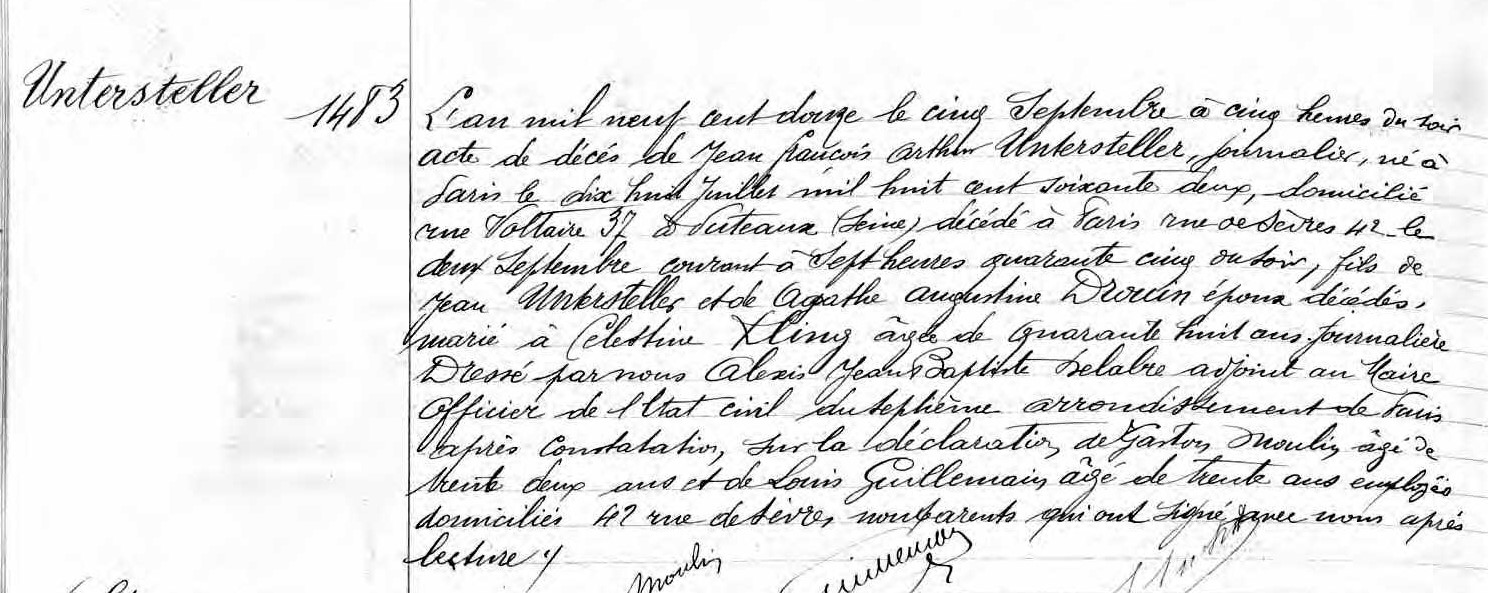 Untersteller
1483
L'an mil neuf cent douze le cinq Septembre à cinq heures du soir
acte de décès de Jean François Arthur Untersteller, journalier, né à
Paris le dix huit Juillet mil huit cent soixante deux, domicilié
rue Voltaire 37 à Puteaux (Seine) décédé à Paris rue de Sèvres 42 le
deux Septembre courant à Sept heures quarante cinq du soir, fils de
Jean Untersteller et de Agathe Augustine Drouin époux décédés,
marié à Célestine Kling âgée de quarante huit ans journalière
Dressé par nous Alexis Jean Baptiste Delabre adjoint au Maire
Officier de l'Etat civil du septième arrondissement de Paris
après constatation, sur la déclaration de Gaston Moulin âgé de
trente deux ans et de Louis Guillemain âgé de trente ans employés
domiciliés 42 rue de Sèvres, non parents qui ont signé avec nous après
lecture ./.
Moulin
Guillemain